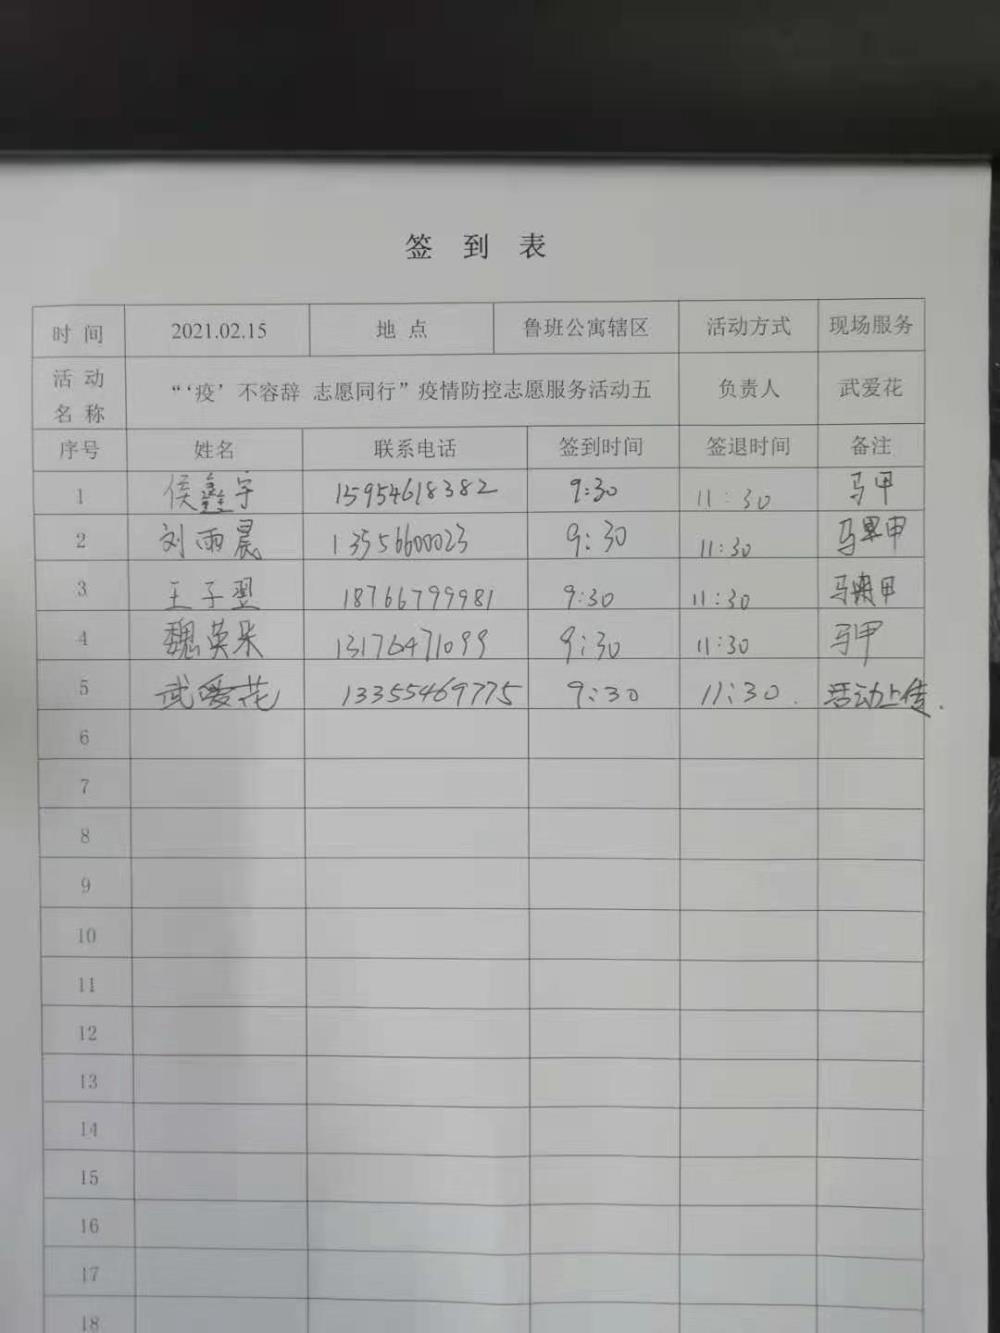 签 到 表
时 间 2021.02.15 地 点 鲁班公寓辖区 活动方式 现场服务
活 动 名 称 “‘疫’不容辞 志愿同行”疫情防控志愿服务活动五 负责人 武爱花
序号 姓名 联系电话 签到时间 签退时间 备注
1 侯鑫宇 15954618382 9:30 11:30 马甲
2 刘雨晨 13556600023 9:30 11:30 马甲
3 王子翌 18766799981 9:30 11:30 马甲
4 魏英 13176471099 9:30 11:30 马甲
5 武爱花 13355469775 9:30 11:30. 活动上传.
6
7
8
9
10
11
12
13
14
15
16
17
18